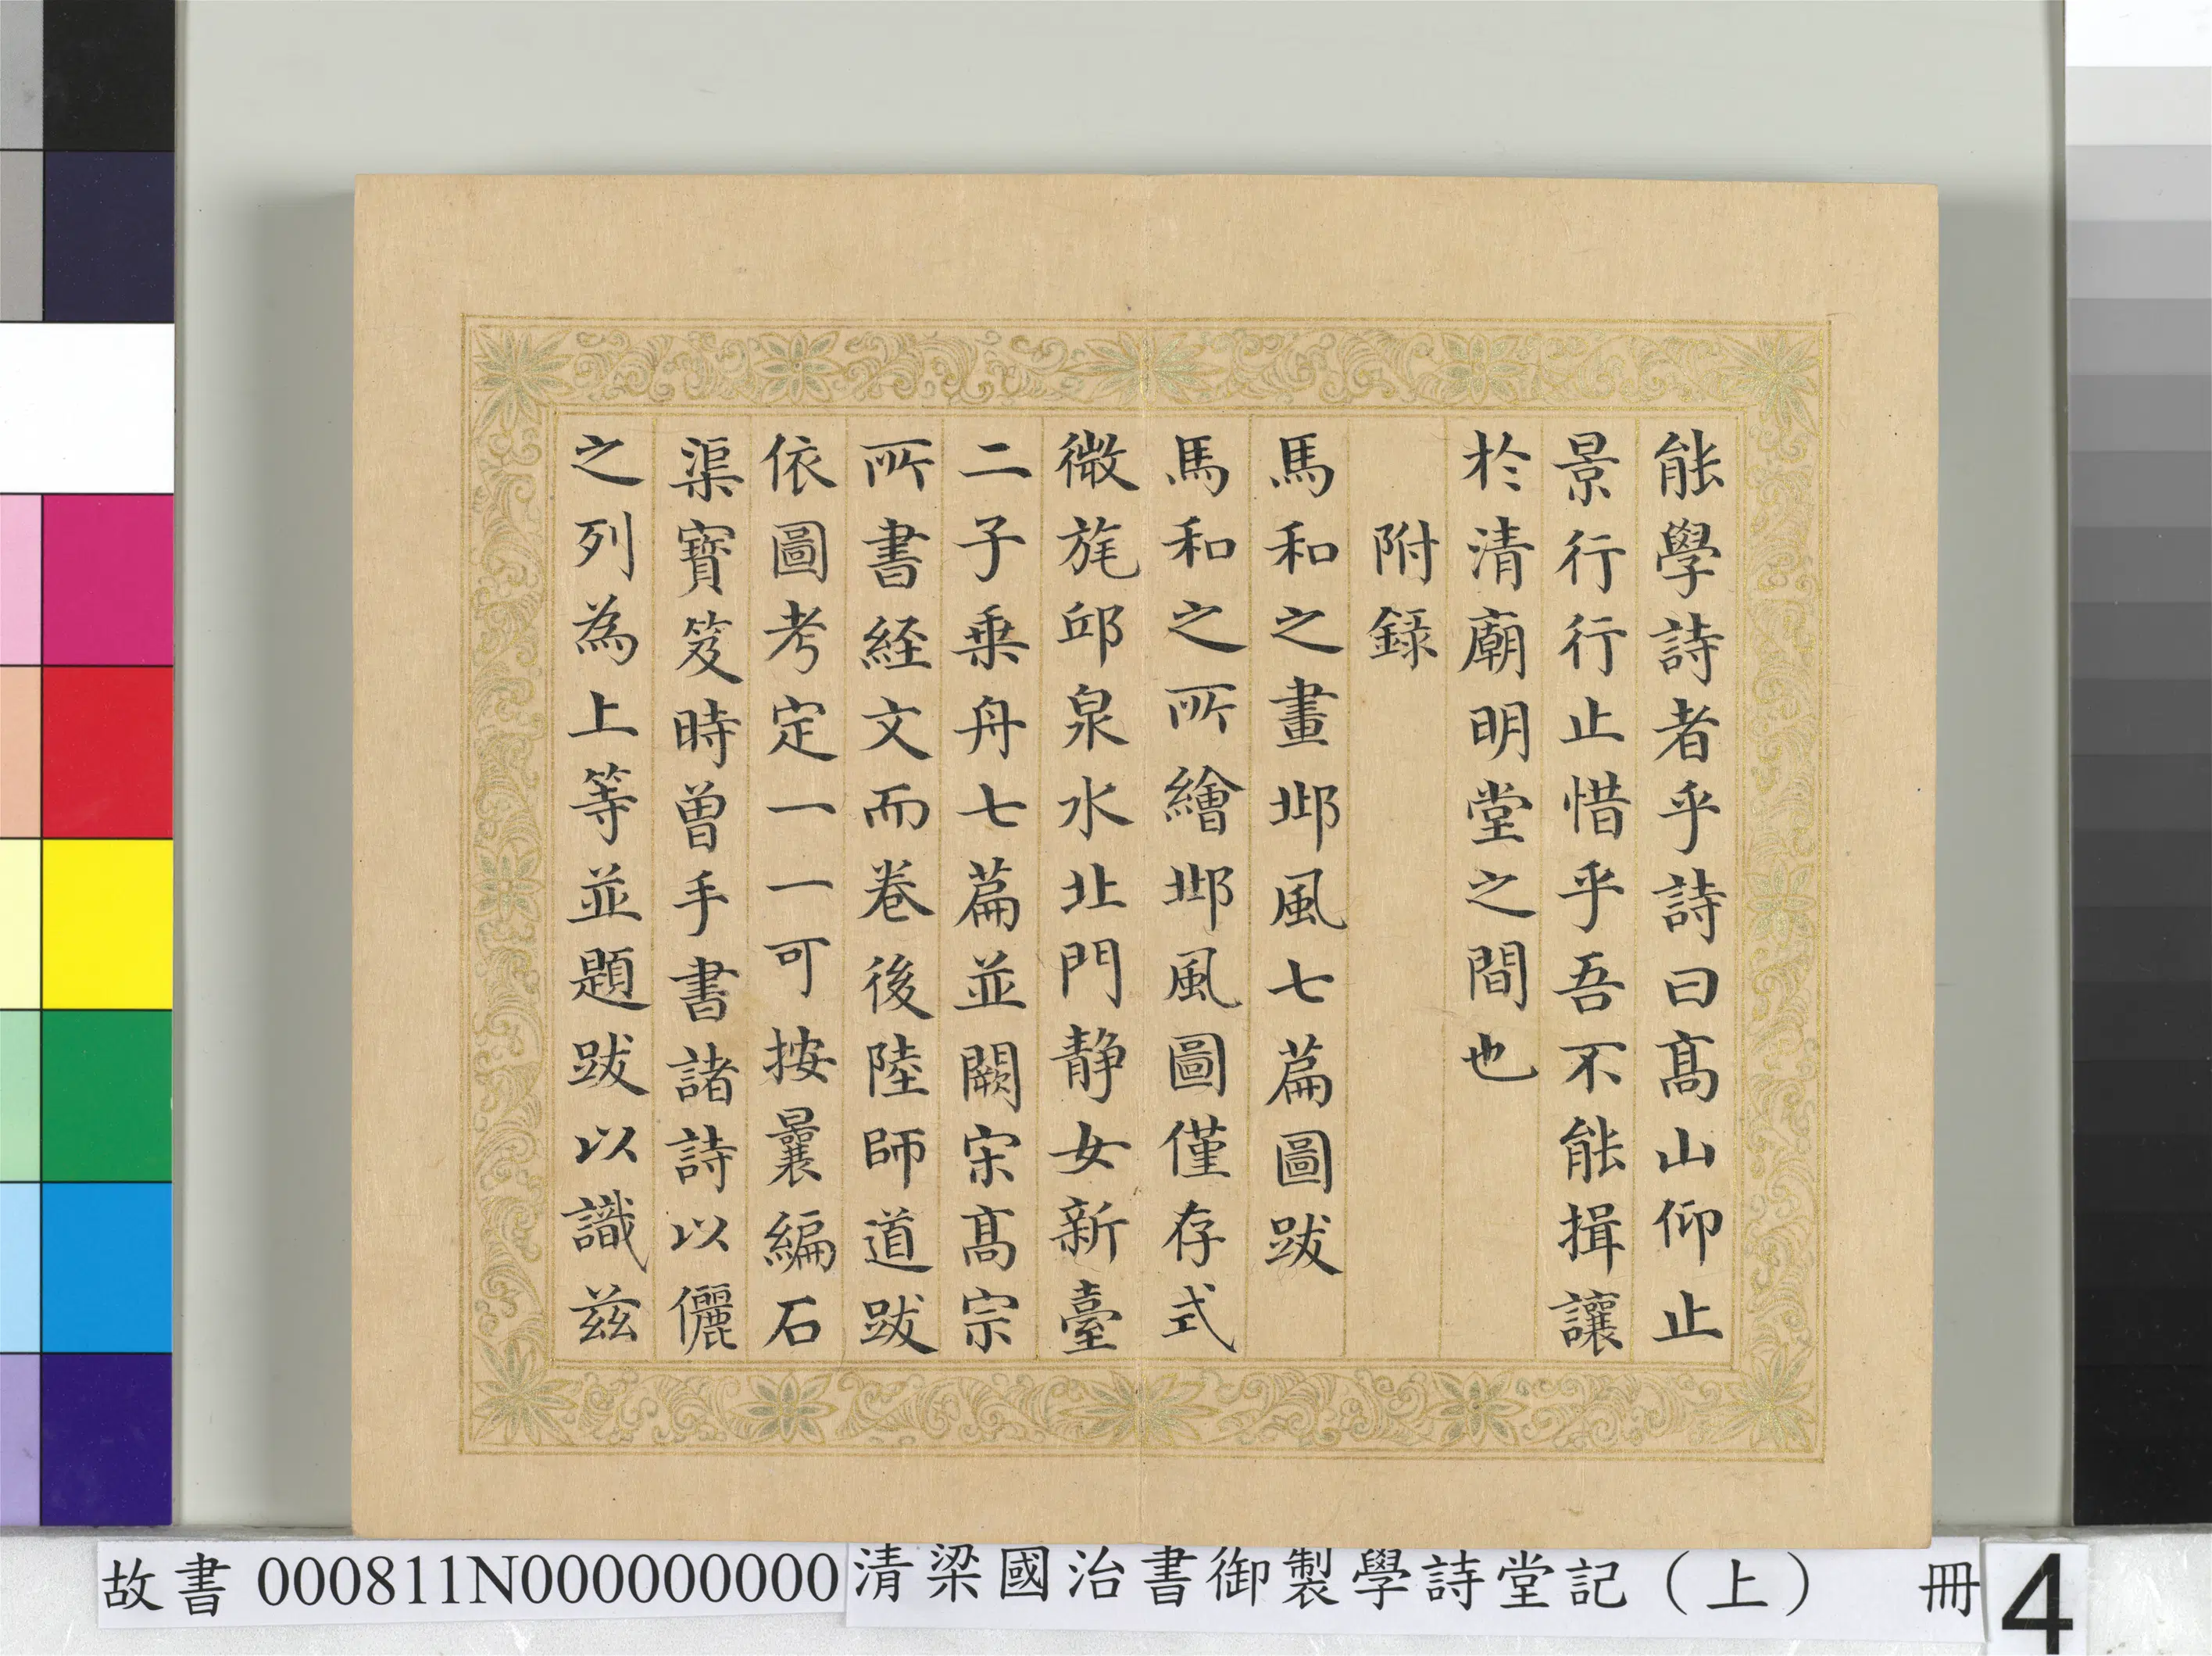 能學詩者乎詩曰髙山仰止
景行行止惜乎吾不能揖讓
於清廟明堂之間也
附録
馬和之畫邶風七篇圖跋
馬和之所繪邶風圖僅存式
微旄邱泉水北門静女新臺
二子乗舟七篇並闕宋髙宗
所書經文而卷後陸師道跋
依圖考定一一可按曩編石
渠寶笈時曾手書諸詩以儷
之列為上等並題跋以識兹
故書 000811N000000000 清梁國治書御製學詩堂記（上） 冊 4